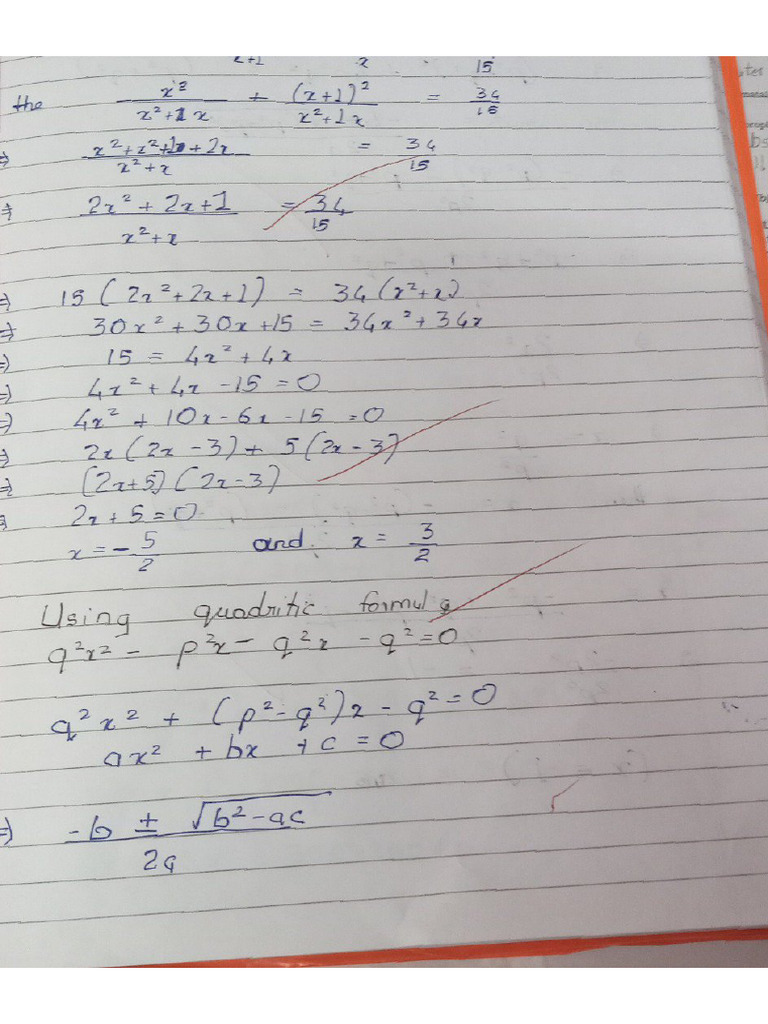 x+1 x 15
the x²/(x²+1x) + (x+1)²/(x²+1x) = 34/15
⇒ (x²+x²+1+2x)/(x²+x) = 34/15
⇒ (2x²+2x+1)/(x²+x) = 34/15
⇒ 15(2x²+2x+1) = 34(x²+x)
⇒ 30x²+30x+15 = 34x²+34x
⇒ 15 = 4x²+4x
⇒ 4x²+4x-15=0
⇒ 4x²+10x-6x-15=0
⇒ 2x(2x-3)+5(2x-3)
⇒ (2x+5)(2x-3)
⇒ 2x+5=0
x=-5/2 and x=3/2
Using quadritic formula
q²x²- p²x- q²x -q²=0
q²x² + (p²-q²)x - q²=0
ax² + bx + c = 0
⇒ (-b ± √(b²-ac))/2a